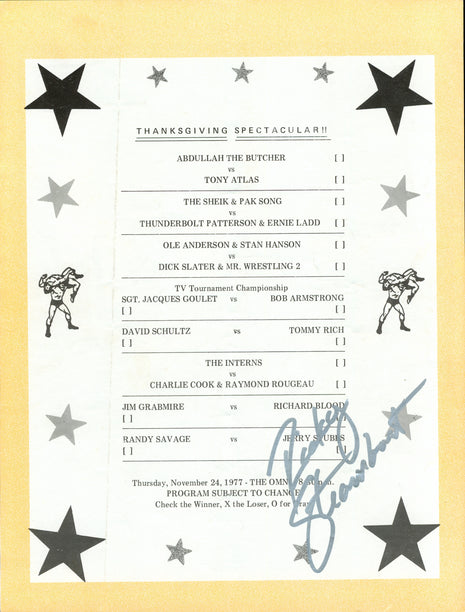 THANKSGIVING SPECTACULAR!!
ABDULLAH THE BUTCHER [ ]
vs
TONY ATLAS [ ]
THE SHEIK & PAK SONG [ ]
vs
THUNDERBOLT PATTERSON & ERNIE LADD [ ]
OLE ANDERSON & STAN HANSON [ ]
vs
DICK SLATER & MR. WRESTLING 2 [ ]
TV Tournament Championship
SGT. JACQUES GOULET vs BOB ARMSTRONG
[ ] [ ]
DAVID SCHULTZ vs TOMMY RICH
[ ] [ ]
THE INTERNS [ ]
vs
CHARLIE COOK & RAYMOND ROUGEAU [ ]
JIM GRABMIRE vs RICHARD BLOOD
[ ] [ ]
RANDY SAVAGE vs JERRY STUBBS
[ ] [ ]
Ricky Steamboat
Thursday, November 24, 1977 - THE OMNI 8 p.m.
PROGRAM SUBJECT TO CHANGE
Check the Winner, X the Loser, O for Draw